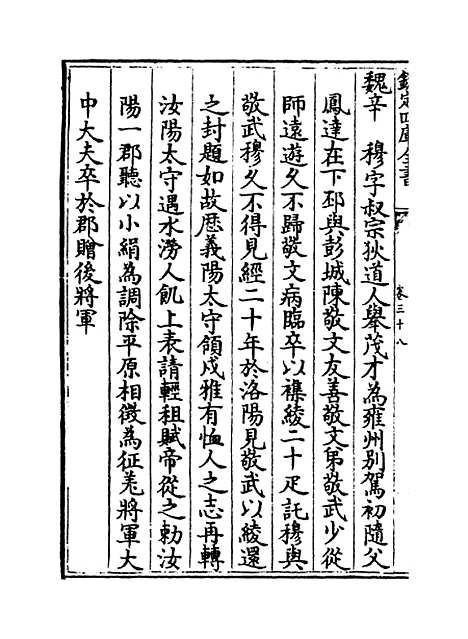 欽定四庫全書
卷三十八
魏辛　穆字叔宗狄道人舉茂才為雍州别駕初隨父
鳳達在下邳與彭城陳敬文友善敬文弟敬武少從
師遠遊久不歸敬文病臨卒以襍綾二十疋託穆與
敬武穆久不得見經二十年於洛陽見敬武以綾還
之封題如故厯義陽太守領戍雅有恤人之志再轉
汝陽太守遇水澇人飢上表請輕租賦帝從之勅汝
陽一郡聽以小絹為調除平原相徵為征羌將軍大
中大夫卒於郡贈後將軍